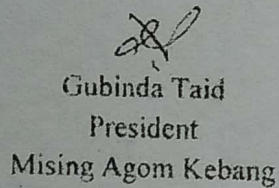 Gubinda Taid
President
Mising Agom Kebang